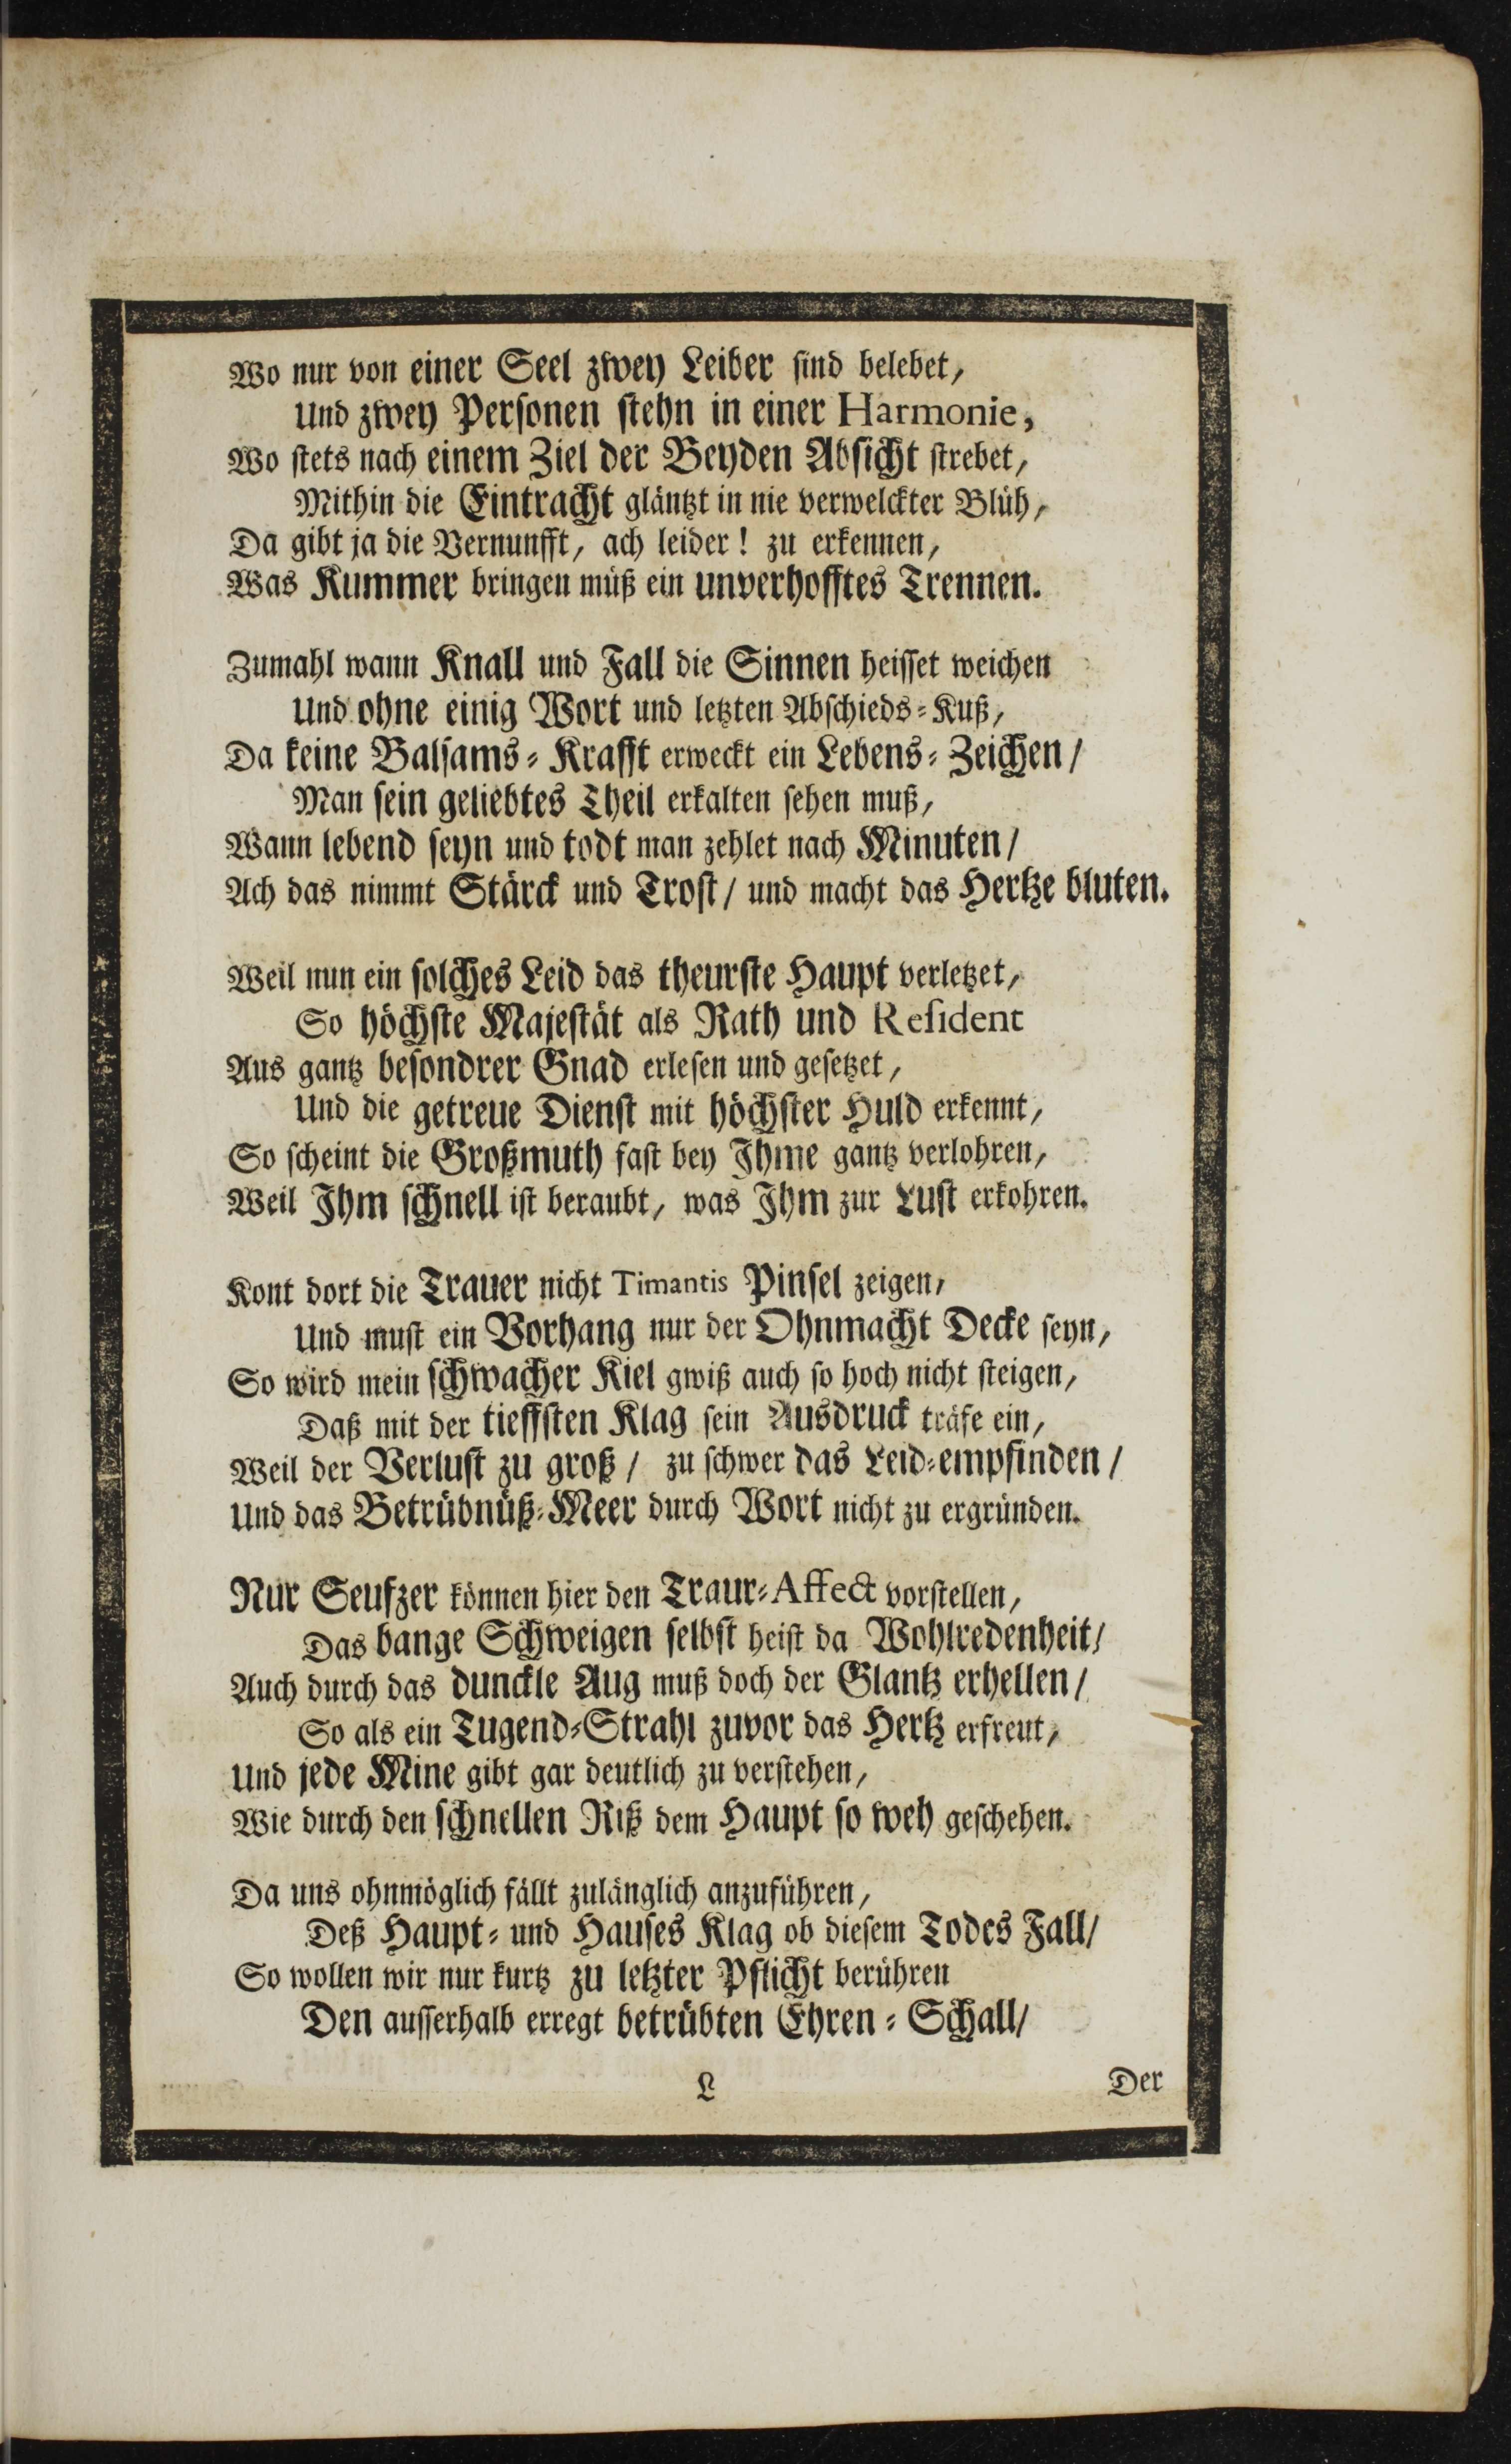 Wo nur von einer Seel zwey Leiber sind belebet,
Und zwey Personen stehn in einer Harmonie,
Wo stets nach einem Ziel der Beyden Absicht strebet,
Mithin die Eintracht gläntzt in nie verwelckter Blüh,
Da gibt ja die Vernunfft, ach leider! zu erkennen,
Was Kummer bringen müß ein unverhofftes Trennen.
Zumahl wann Knall und Fall die Sinnen heisset weichen
Und ohne einig Wort und letzten Abschieds-Kuß,
Da keine Balsams-Krafft erweckt ein Lebens-Zeichen/
Man sein geliebtes Theil erkalten sehen muß,
Wann lebend seyn und todt man zehlet nach Minuten/
Ach das nimmt Stärck und Trost/ und macht das Hertze bluten.
Weil nun ein solches Leid das theurste Haupt verletzet,
So höchste Majestät als Rath und Resident
Aus gantz besondrer Gnad erlesen und gesetzet,
Und die getreue Dienst mit höchster Huld erkennt,
So scheint die Großmuth fast bey Ihme gantz verlohren,
Weil Ihm schnell ist beraubt, was Ihm zur Lust erkohren.
Kont dort die Trauer nicht Timantis Pinsel zeigen,
Und must ein Vorhang nur der Ohnmacht Decke seyn,
So wird mein schwacher Kiel gwiß auch so hoch nicht steigen,
Daß mit der tieffsten Klag sein Ausdruck träfe ein,
Weil der Verlust zu groß/ zu schwer das Leid-empfinden/
Und das Betrübnüß-Meer durch Wort nicht zu ergründen.
Nur Seufzer können hier den Traur-Affect vorstellen,
Das bange Schweigen selbst heist da Wohlredenheit/
Auch durch das dunckle Aug muß doch der Glantz erhellen/
So als ein Tugend-Strahl zuvor das Hertz erfreut,
Und jede Mine gibt gar deutlich zu verstehen,
Wie durch den schnellen Riß dem Haupt so weh geschehen.
Da uns ohnmöglich fällt zulänglich anzuführen,
Deß Haupt- und Hauses Klag ob diesem Todes Fall/
So wollen wir nur kurtz zu letzter Pflicht berühren
Den ausserhalb erregt betrübten Ehren-Schall/
L
Der